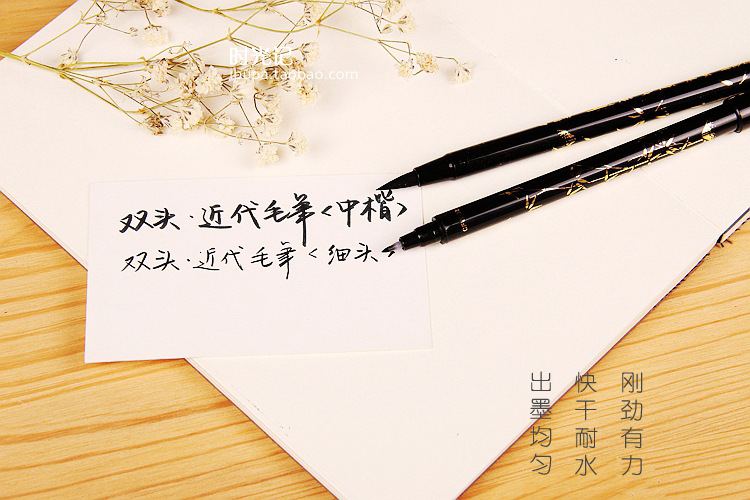 时光记
ihupa.taobao.com
双头·近代毛笔<中楷>
双头·近代毛笔<细头>
刚劲有力
快干耐水
出墨均匀